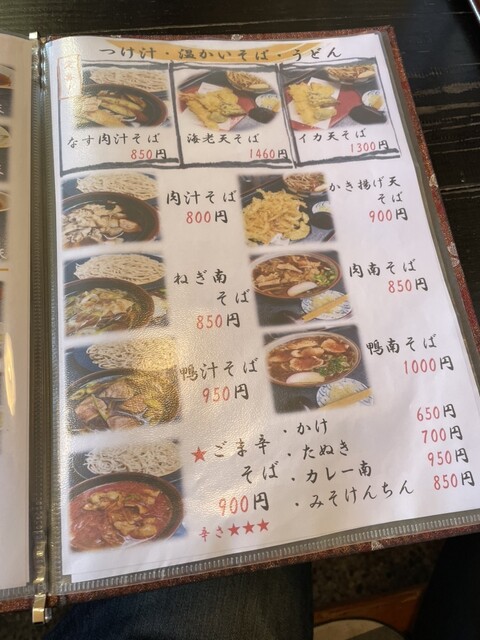 つけ汁・温かいそば・うどん
なす肉汁そば
850円
海老天そば
1460円
イカ天そば
1300円
肉汁そば
800円
かき揚げ天
そば
900円
ねぎ南
そば
850円
肉南そば
850円
鴨汁そば
950円
鴨南そば
1000円
★ごま辛
そば
900円
辛さ★★★
・かけ 650円
・たぬき 700円
・カレー南 950円
・みそけんちん 850円